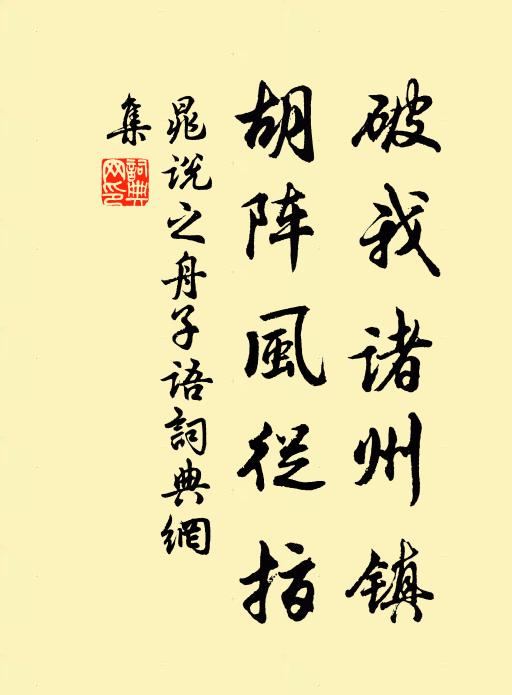 破我诸州镇
胡阵風從指
晁说之舟子语詞典網
集
詞典网印